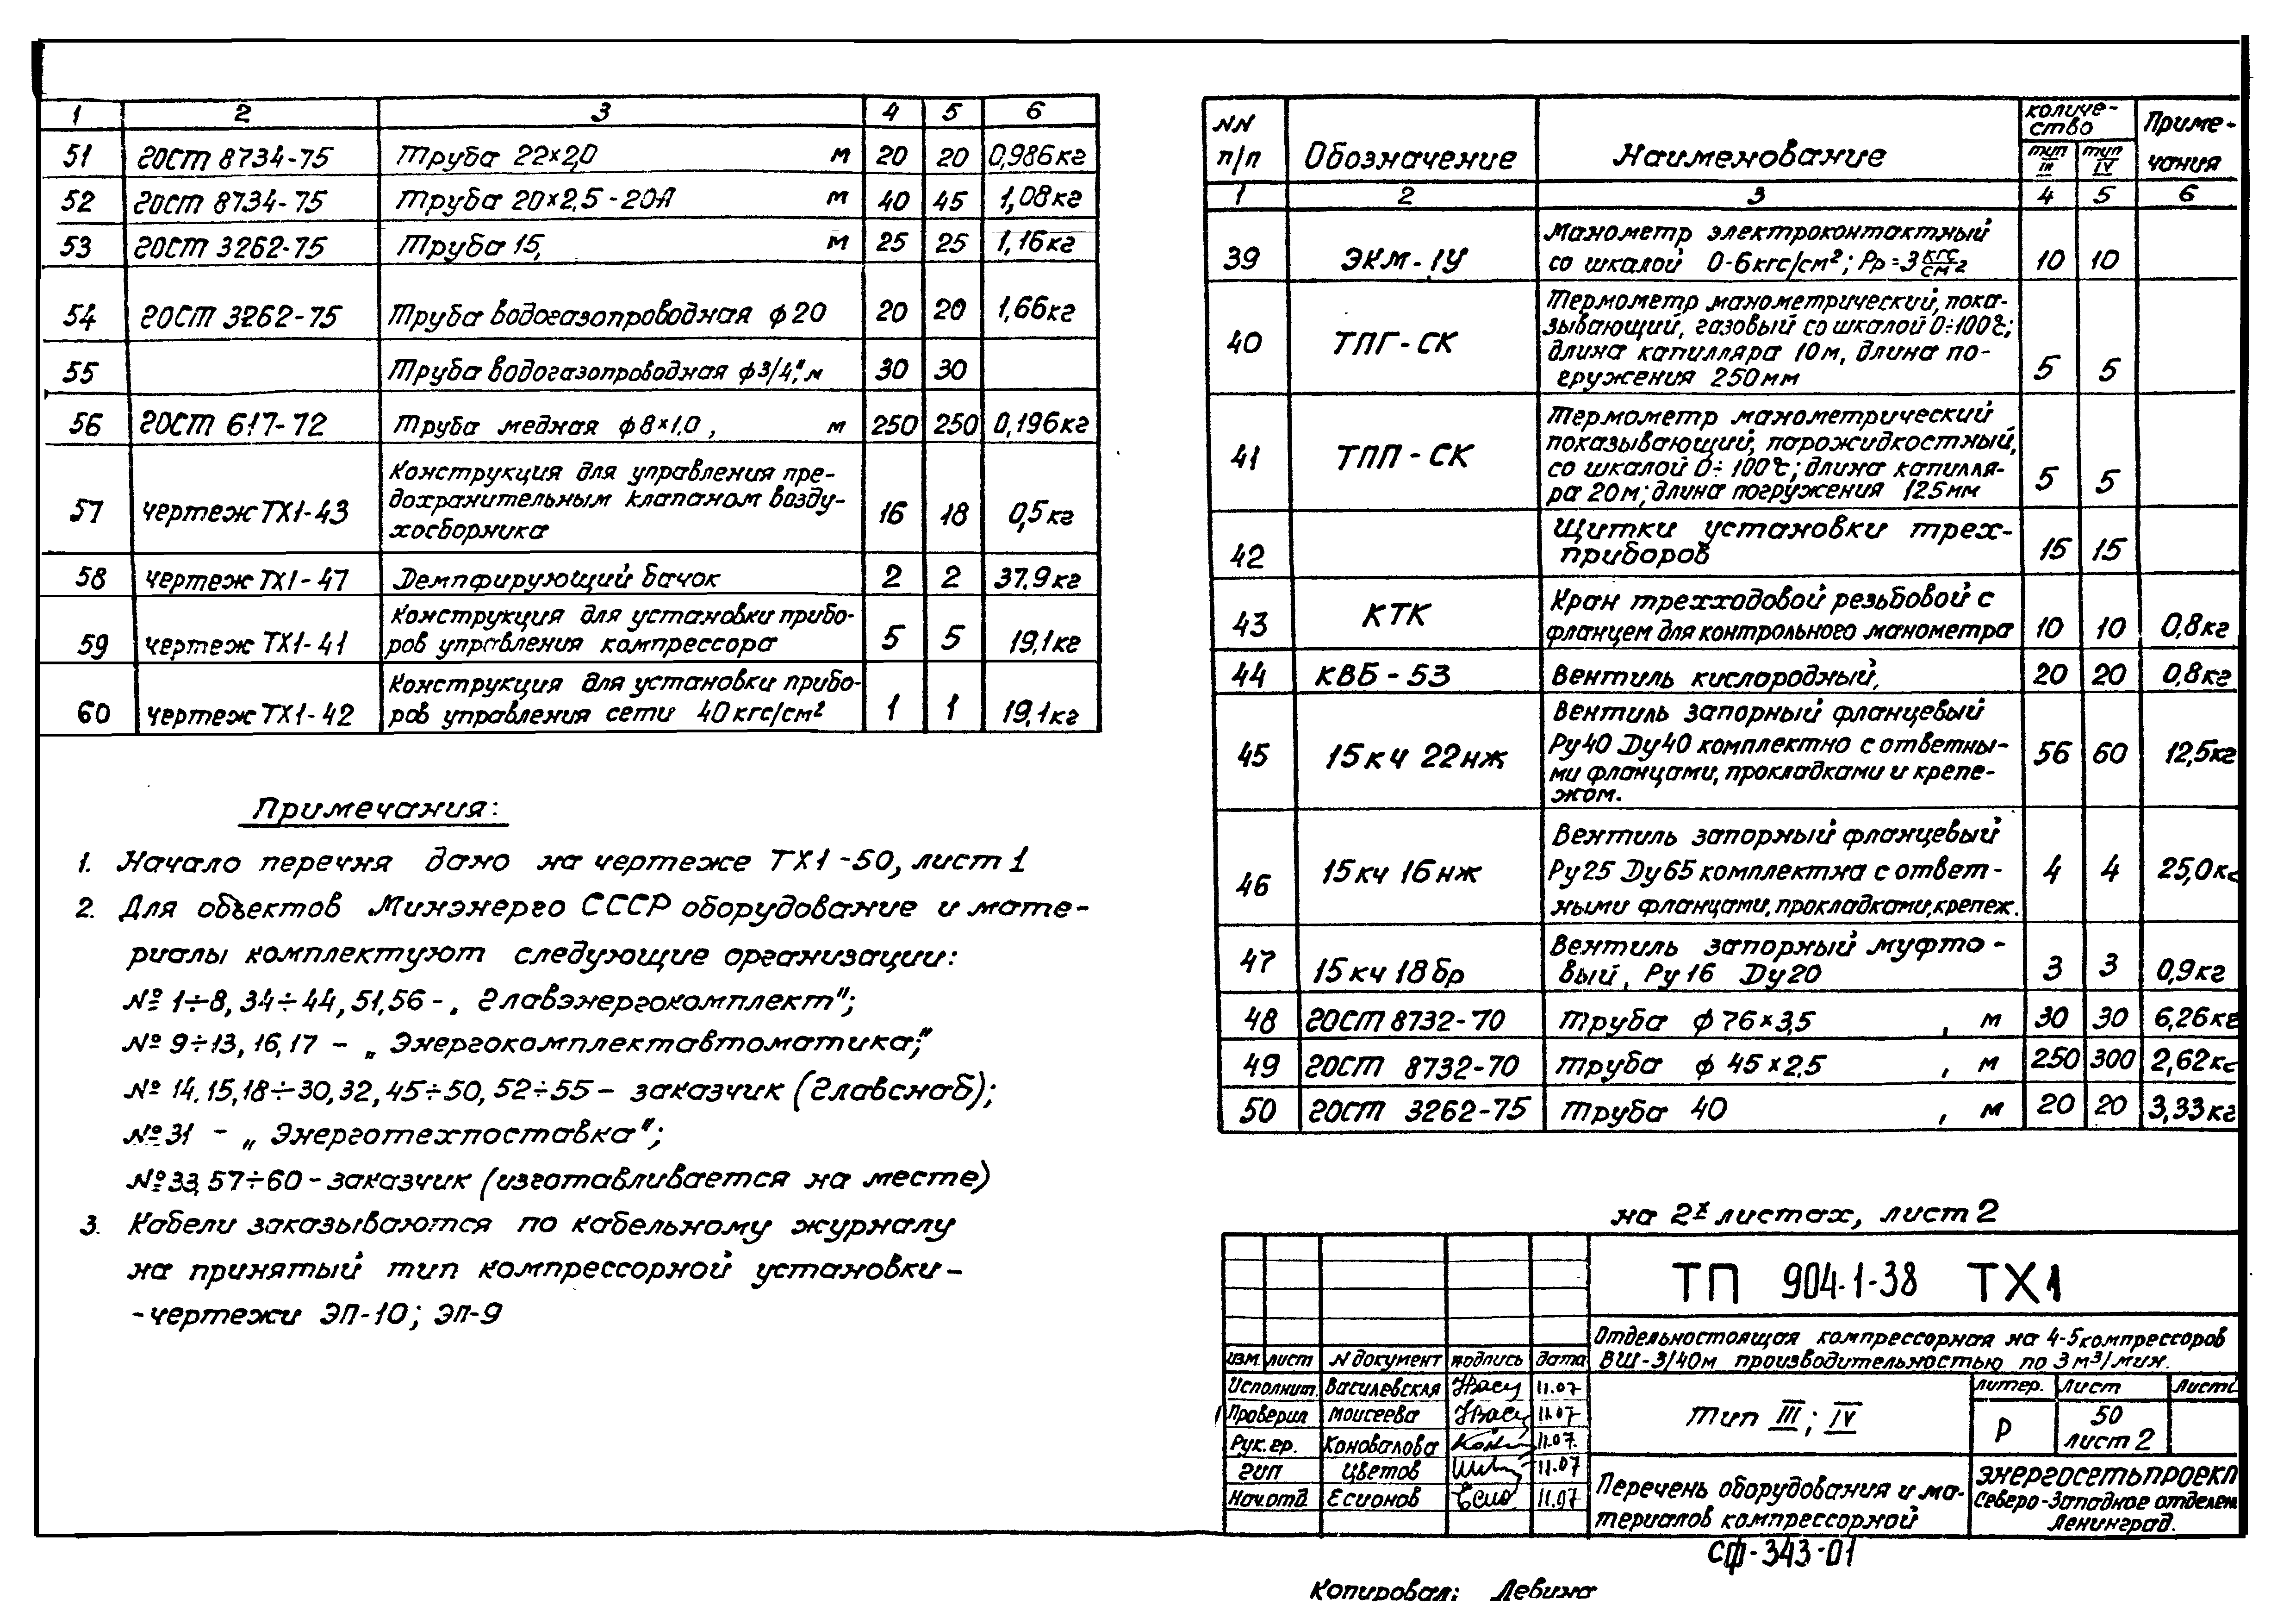 1 2 3 4 5 6
51 ГОСТ 8734-75 Труба 22×2,0 м 20 20 0,986кг
52 ГОСТ 8734-75 Труба 20×2,5-20А м 40 45 1,08кг
53 ГОСТ 3262-75 Труба 15, м 25 25 1,16кг
54 ГОСТ 3262-75 Труба водогазопроводная ф20 20 20 1,66кг
55 Труба водогазопроводная ф3/4," м 30 30
56 ГОСТ 617-72 Труба медная ф8×1,0, м 250 250 0,196кг
Конструкция для управления пре-
57 чертеж ТХ1-43 дохранительным клапаном возду- 16 18 0,5кг
хосборника
58 чертеж ТХ1-47 Демпфирующий бачок 2 2 37.9кг
Конструкция для установки прибо-
59 чертеж ТХ1-41 ров управления компрессора 5 5 19,1кг
Конструкция для установки прибо-
60 чертеж ТХ1-42 ров управления сети 40кгс/см² 1 1 19,1кг
Примечания:
1. Начало перечня дано на чертеже ТХ1-50, лист 1
2. Для объектов Минэнерго СССР оборудование и мате-
риалы комплектуют следующие организации:
№ 1÷8, 34÷44, 51,56 -„ Главэнергокомплект";
№ 9÷13, 16, 17 - „ Энергокомплектавтоматика;"
№ 14, 15, 18÷30, 32, 45÷50, 52÷55 - заказчик (Главснаб);
№ 31 - „ Энерготехпоставка";
№ 33, 57÷60 - заказчик (изготавливается на месте)
3. Кабели заказываются по кабельному журналу
на принятый тип компрессорной установки -
- чертежи ЭП-10; ЭП-9
NN п/п Обозначение Наименование количе-ство Приме-чания
тип III тип IV
1 2 3 4 5 6
Манометр электроконтактный
39 ЭКМ-1У со шкалой 0-6кгс/см²; Рр=3 кгс/см² 10 10
Термометр манометрический, пока-
зывающий, газовый со шкалой 0÷100°с;
40 ТПГ-СК длина капилляра 10м, длина по-
гружения 250мм 5 5
Термометр манометрический
показывающий, парожидкостный,
41 ТПП-СК со шкалой 0÷100°с; длина капилля-
ра 20м; длина погружения 125мм 5 5
Щитки установки трех-
42 приборов 15 15
Кран трехходовой резьбовой с
43 КТК фланцем для контрольного манометра 10 10 0,8кг
44 КВБ-53 Вентиль кислородный, 20 20 0,8кг
Вентиль запорный фланцевый
45 15кч 22нж Ру40 Ду40 комплектно с ответны- 56 60 12,5кг
ми фланцами, прокладками и крепе-
жом.
Вентиль запорный фланцевый
46 15кч 16нж Ру25 Ду65 комплектна с ответ- 4 4 25,0кг
ными фланцами, прокладками, крепеж.
Вентиль запорный муфто-
47 15кч 18бр вый, Ру16 Ду20 3 3 0,9кг
48 ГОСТ 8732-70 Труба ф 76×3,5 , м 30 30 6,26кг
49 ГОСТ 8732-70 Труба ф 45×2.5 , м 250 300 2,62кг
50 ГОСТ 3262-75 Труба 40 , м 20 20 3,33кг
на 2х листах, лист 2
ТП 904-1-38 ТХ1
Отдельностоящая компрессорная на 4-5 компрессоров
ВШ-3/40м производительностью по 3 м³/мин.
изм. лист N документ подпись дата
Исполнит. Василевская 11.07
Проверил Моисеева 11.07
Рук.гр. Коновалова 11.07.
ГИП Цветов 11.07
Нач.отд Есионов 11.07
Тип III; IV
литер. Лист Лист
Р 50 лист 2
Перечень оборудования и ма-
териалов компрессорной
Энергосетьпроек
Северо-Западное отделен
Ленинград.
СФ-343-01
Копировал: Левина